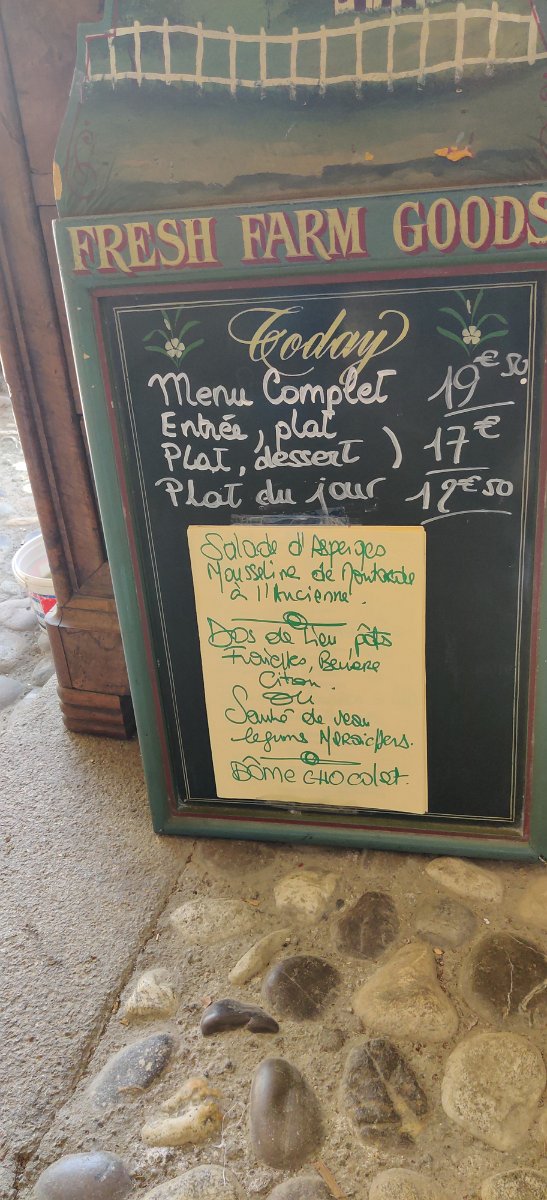 FRESH FARM GOODS
Today
Menu Complet 19€50
Entrée, plat
Plat, dessert ) 17€
Plat du jour 12€50
Salade d'Asperges
Mousseline de Moutarde
à l'Ancienne.
Dos de Lieu, pâtes
Fraîches, Beurre
Citron.
ou
Sauté de veau
légums MARAîCHers.
Dôme CHOCOLAT.